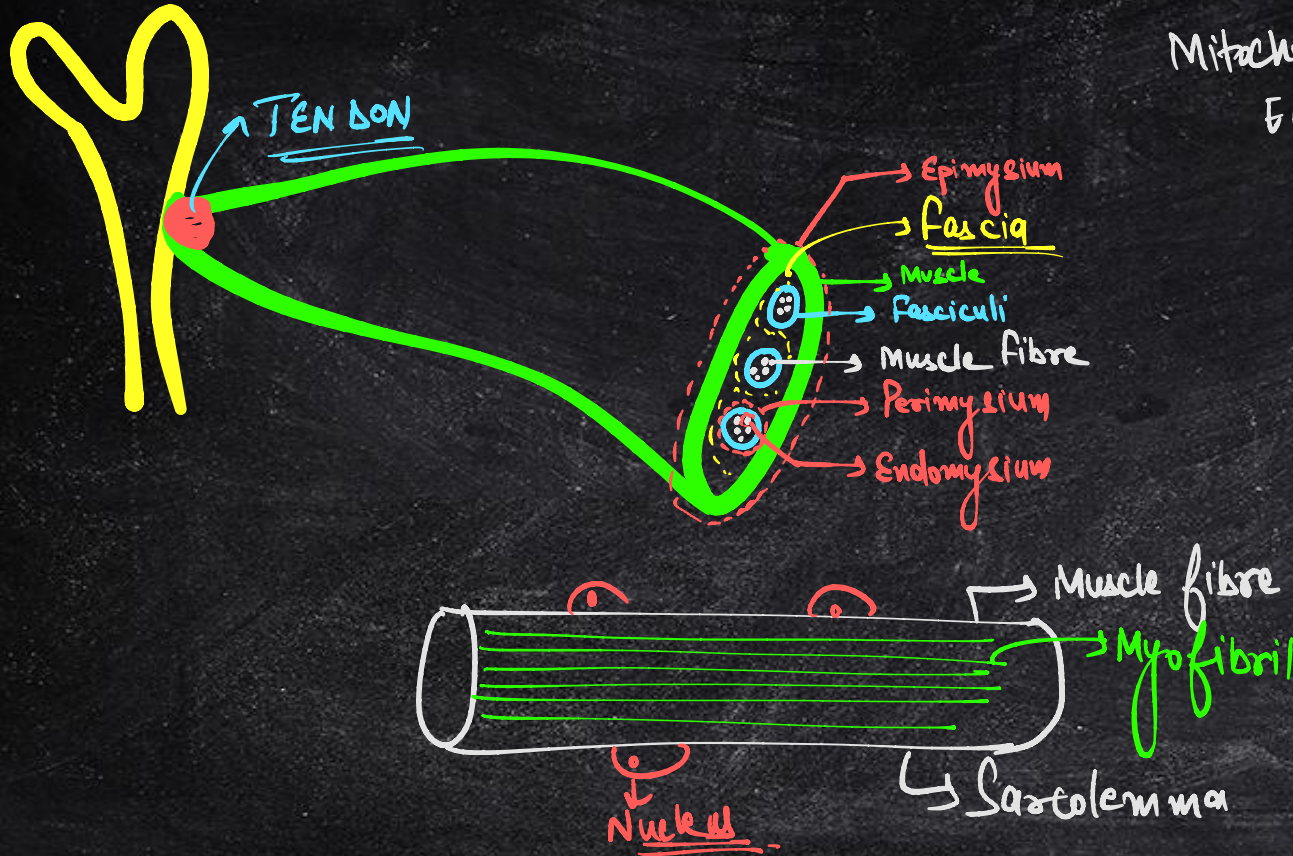 Mitoch
E
TENDON
Epimysium
Fascia
Muscle
Fasciculi
Muscle fibre
Perimysium
Endomysium
Muscle fibre
Myofibril
Sarcolemma
Nucleus